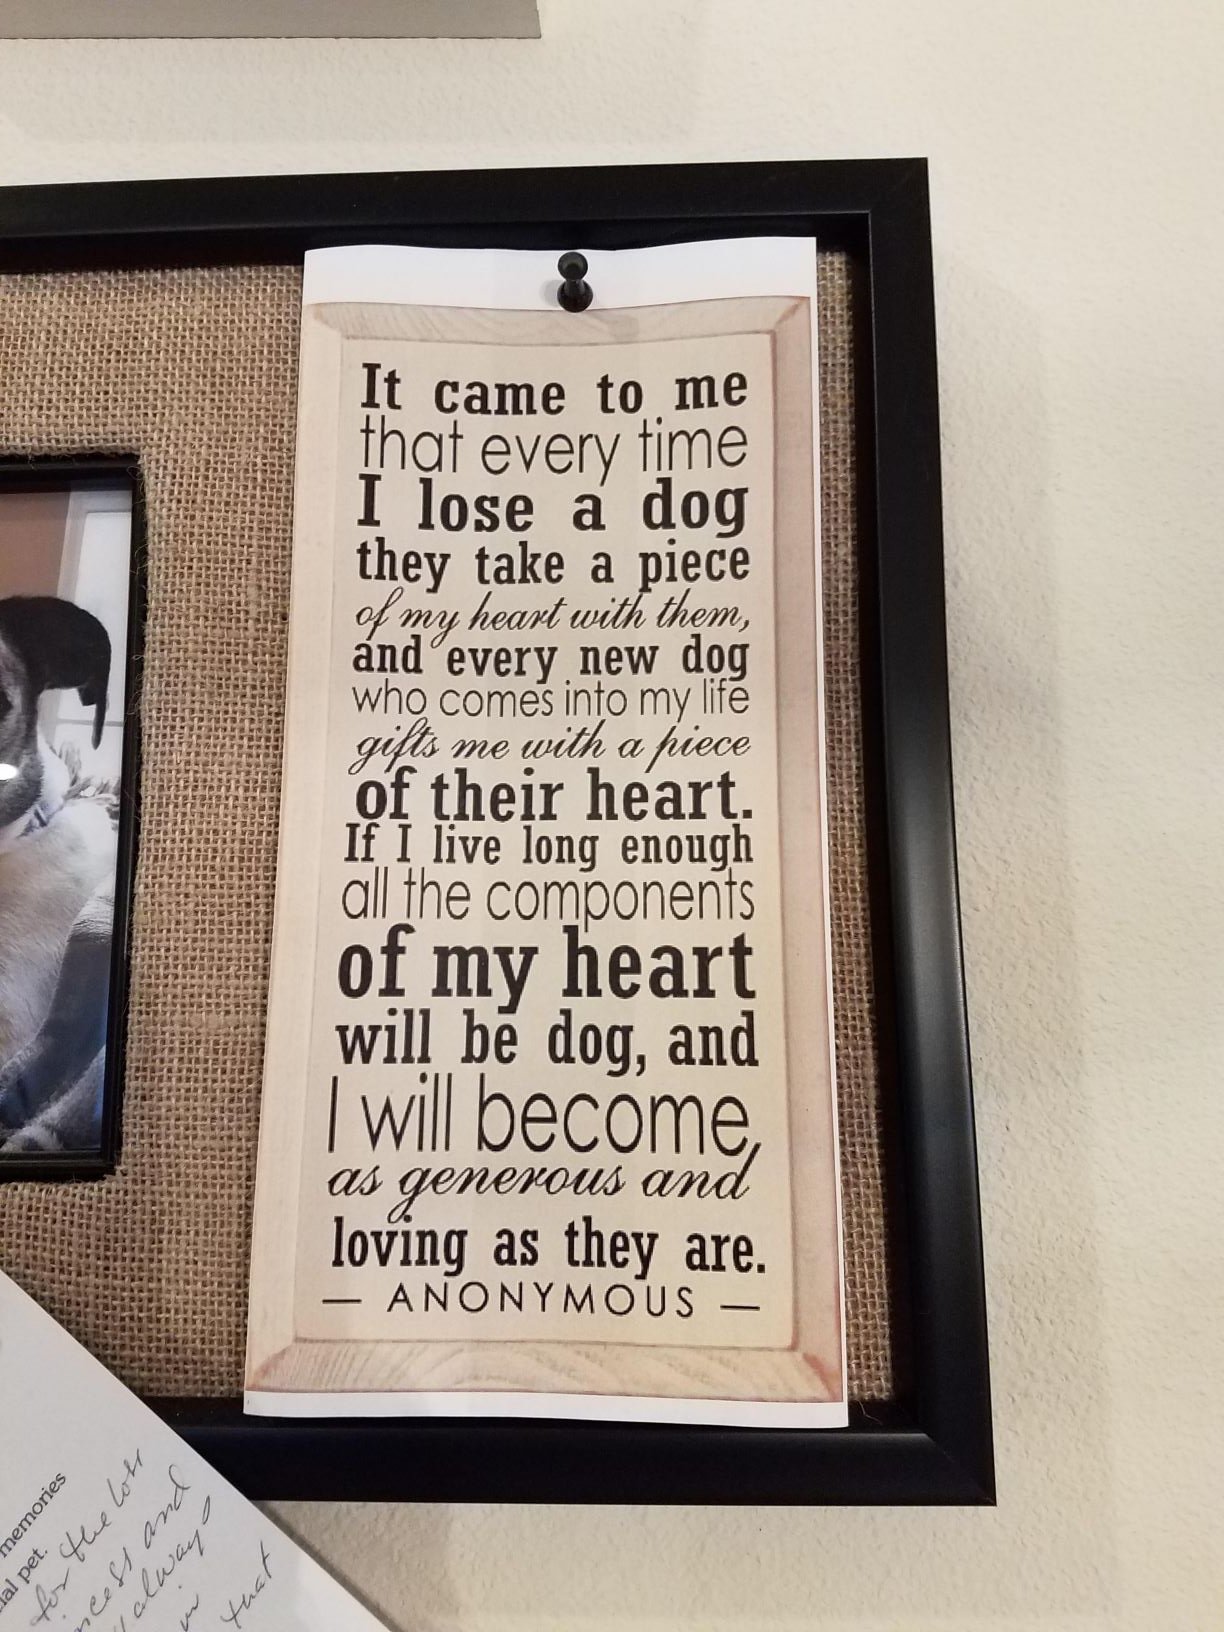 It came to me
that every time
I lose a dog
they take a piece
of my heart with them,
and every new dog
who comes into my life
gifts me with a piece
of their heart.
If I live long enough
all the components
of my heart
will be dog, and
I will become,
as generous and
loving as they are.
— ANONYMOUS —
memories
pet.
for the loss
and
always
in
that